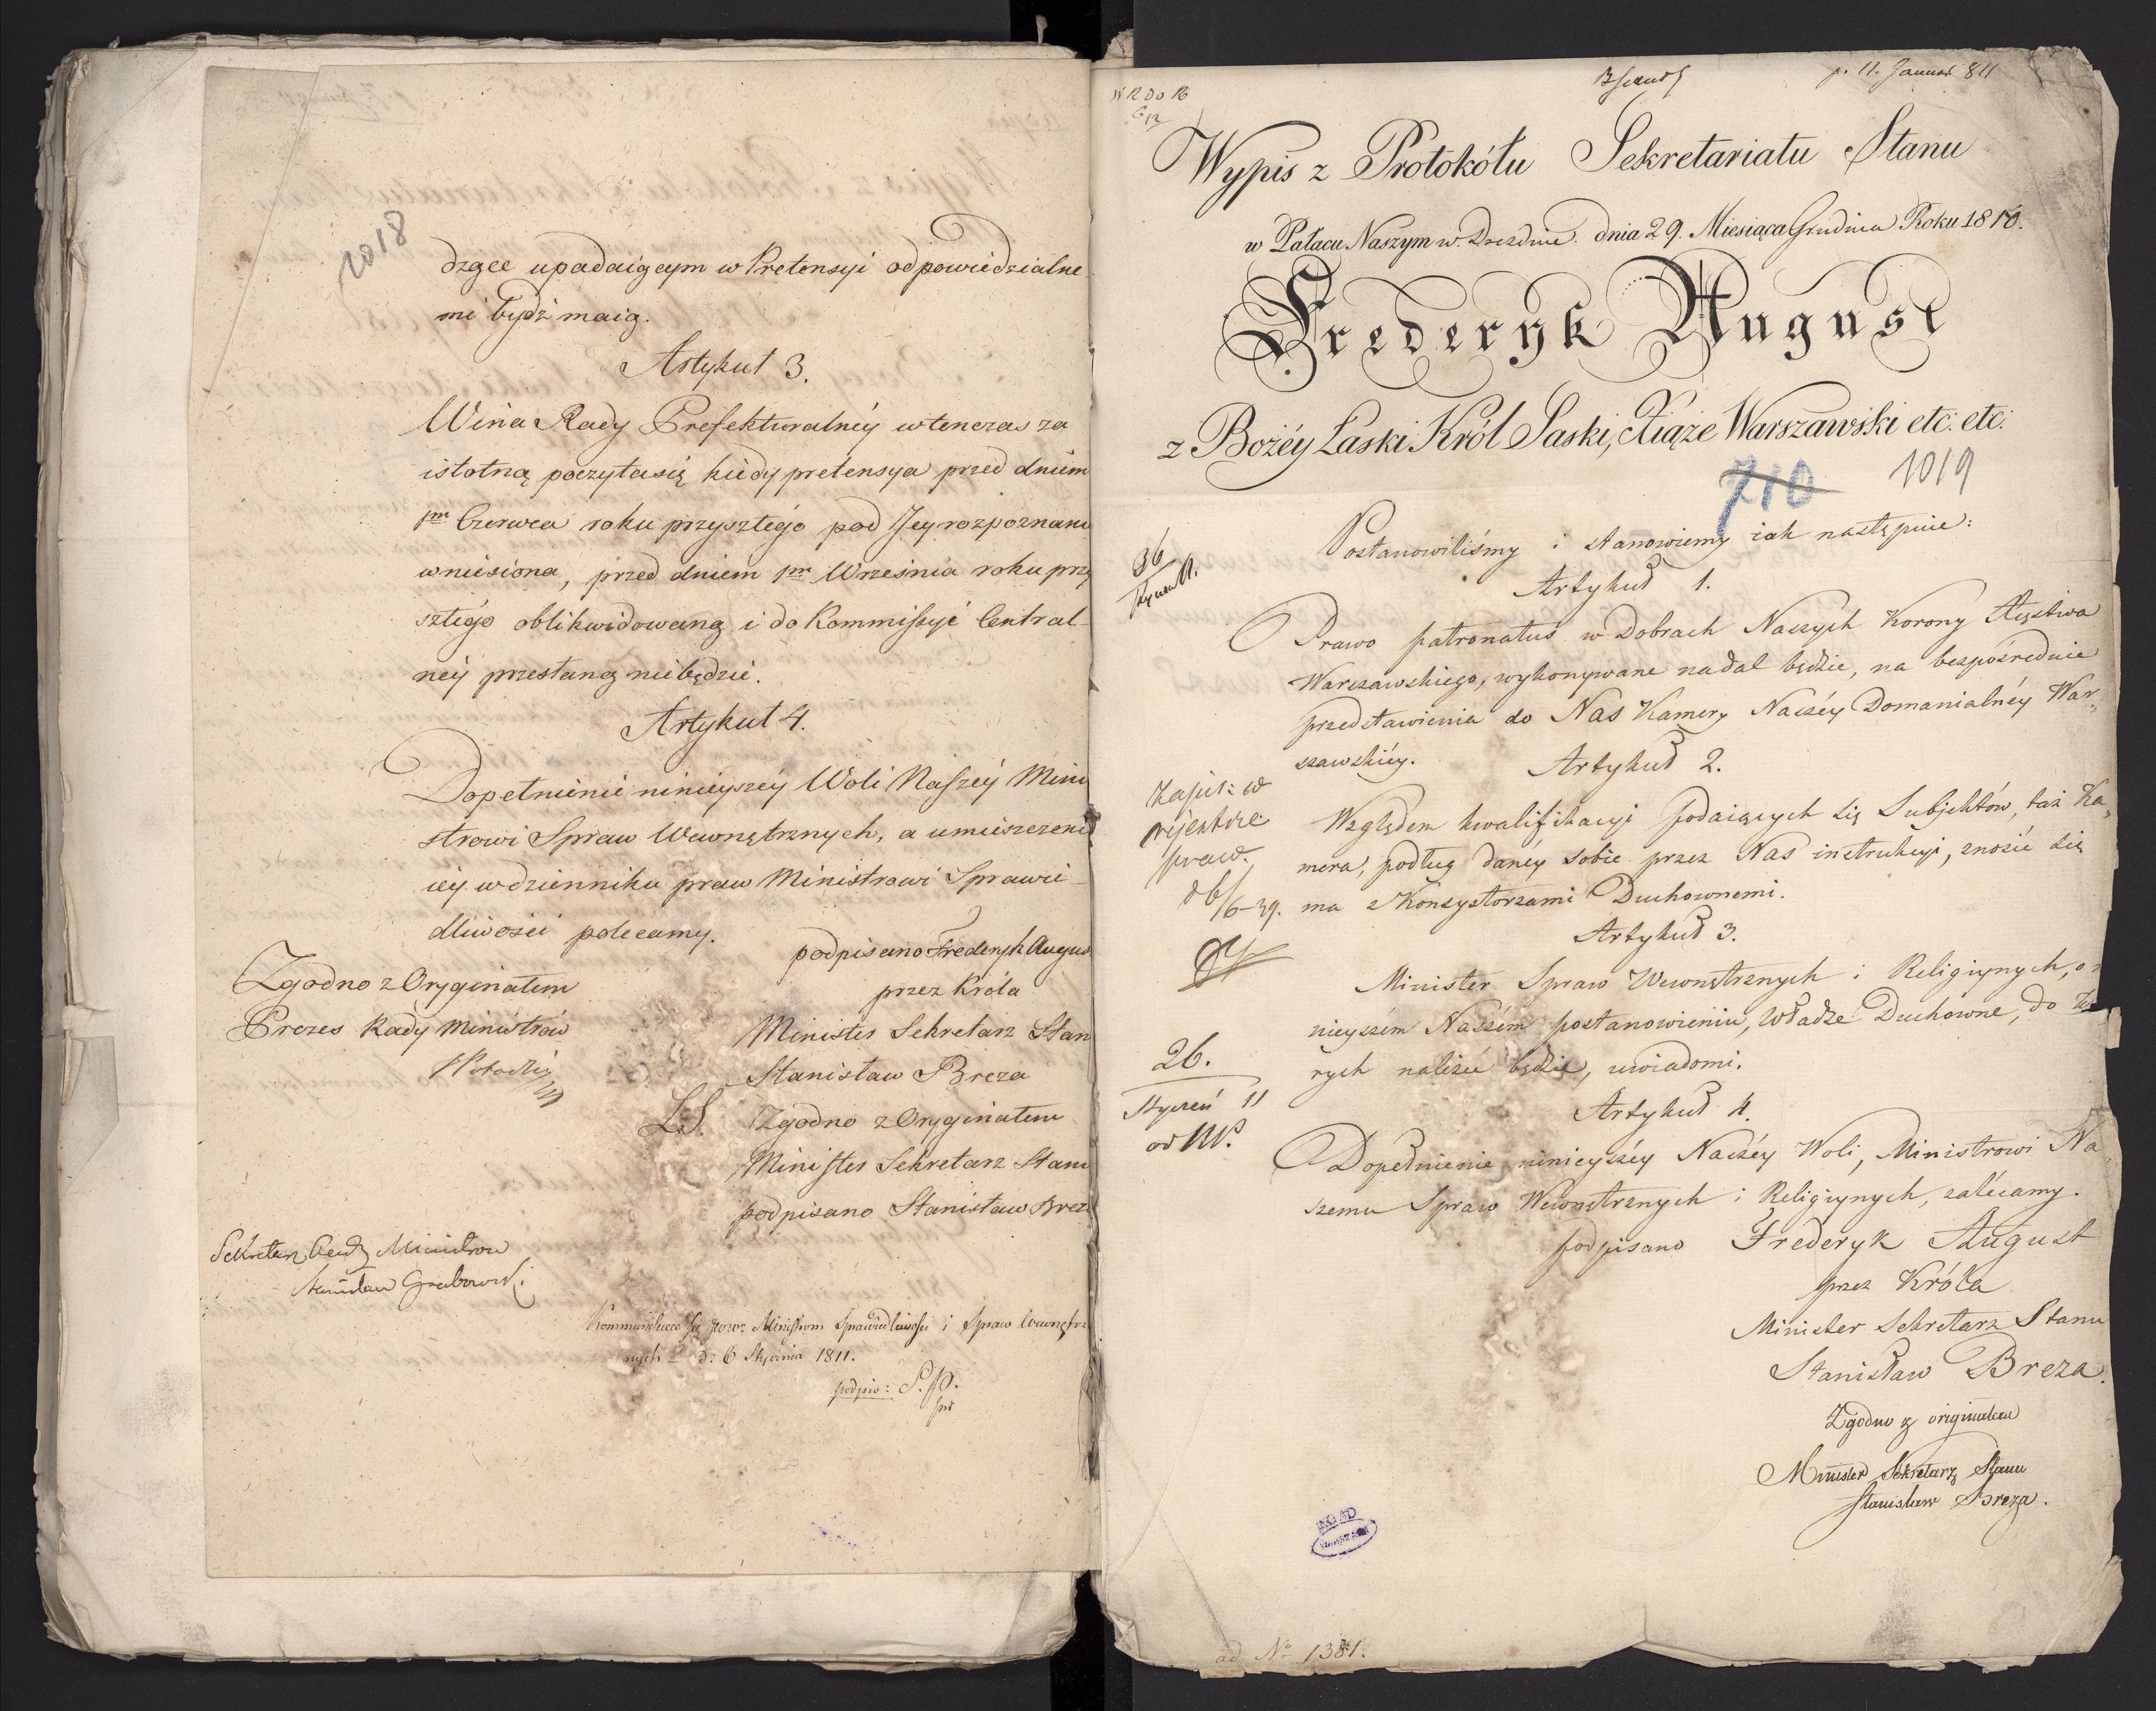 1018
dzące upadaiącym w Pretensyi odpowiedzialne
mi bydź maią.
Artykuł 3.
Wina Rady Prefekturalnéy wtenczas za
istotną poczyta się kiedy pretensya przed dniem
1m Czerwca roku przyszłégo pod Jey rozpoznani
wniesiona, przed dniem 1m Września roku przy
szłégo oblikwidowaną i do Kommissyi Central-
néy przesłaną nie będzie.
Artykuł 4.
Dopełnienie ninieyszéy Woli Naszéy Mini
strowi Spraw Wewnętrznych, a umieszczenie
iéy w dzienniku praw Ministrowi Sprawie-
dliwości polecamy.
podpisano Frederyk Augus
przez Króla
Minister Sekretarz Stan
Stanisław Breza
L.S. Zgodno z Oryginałem
Minister Sekretarz Stanu
podpisano Stanisław Brez
Zgodno z Oryginałem
Prezes Rady Ministrów
Sekretarz Rady Ministrów
Stanisław Grabowski
Ministrom Sprawiedliwości i Spraw Wewnętrz
nych d: 6 Stycznia 1811.
podpis: S. P.
p. 11. Januar 811
Wypis z Protokółu Sekretariatu Stanu
w Pałacu Naszym w Dreźdnie. dnia 29. Miesiąca Grudnia Roku 1810.
Frederyk August
z Bożéy Łaski Król Saski, Xiąże Warszawski etc. etc.
710 1019
Postanowiliśmy i stanowiemy iak następuie:
36
Artykuł 1.
Prawo patronatus w Dobrach Naszych Korony Xięstwa
Warszawskiego, wykonywane nadal będzie, na bezpośrednie
przedstawienia do Nas Kamery Naszéy Domanialnéy War„
szawskiéy.
Artykuł 2.
Względem kwalifikacyi podaiących się Subjektów, taż Ka„
mera, podług danéy sobie przez Nas instrukcyi, znosić się
ma z Konsystorzami Duchownemi.
Zapis: w
rejestrze
praw.
Artykuł 3.
Minister Spraw Wewnętrznych i Religiynych, o
nieyszém Naszém postanowieniu, Władze Duchowne, do
rych należeć będzie, uwiadomi.
26.
Styczeń 11
Artykuł 4.
Dopełnienie ninieyszéy Naszéy Woli, Ministrowi Na„
szemu Spraw Wewnętrznych i Religiynych, zalécamy.
podpisano Frederyk August
przez Króla
Minister Sekretarz Stanu
Stanisław Breza.
Zgodno z originałem
Minister Sekretarz Stanu
Stanisław Breza.
ad No 1381.